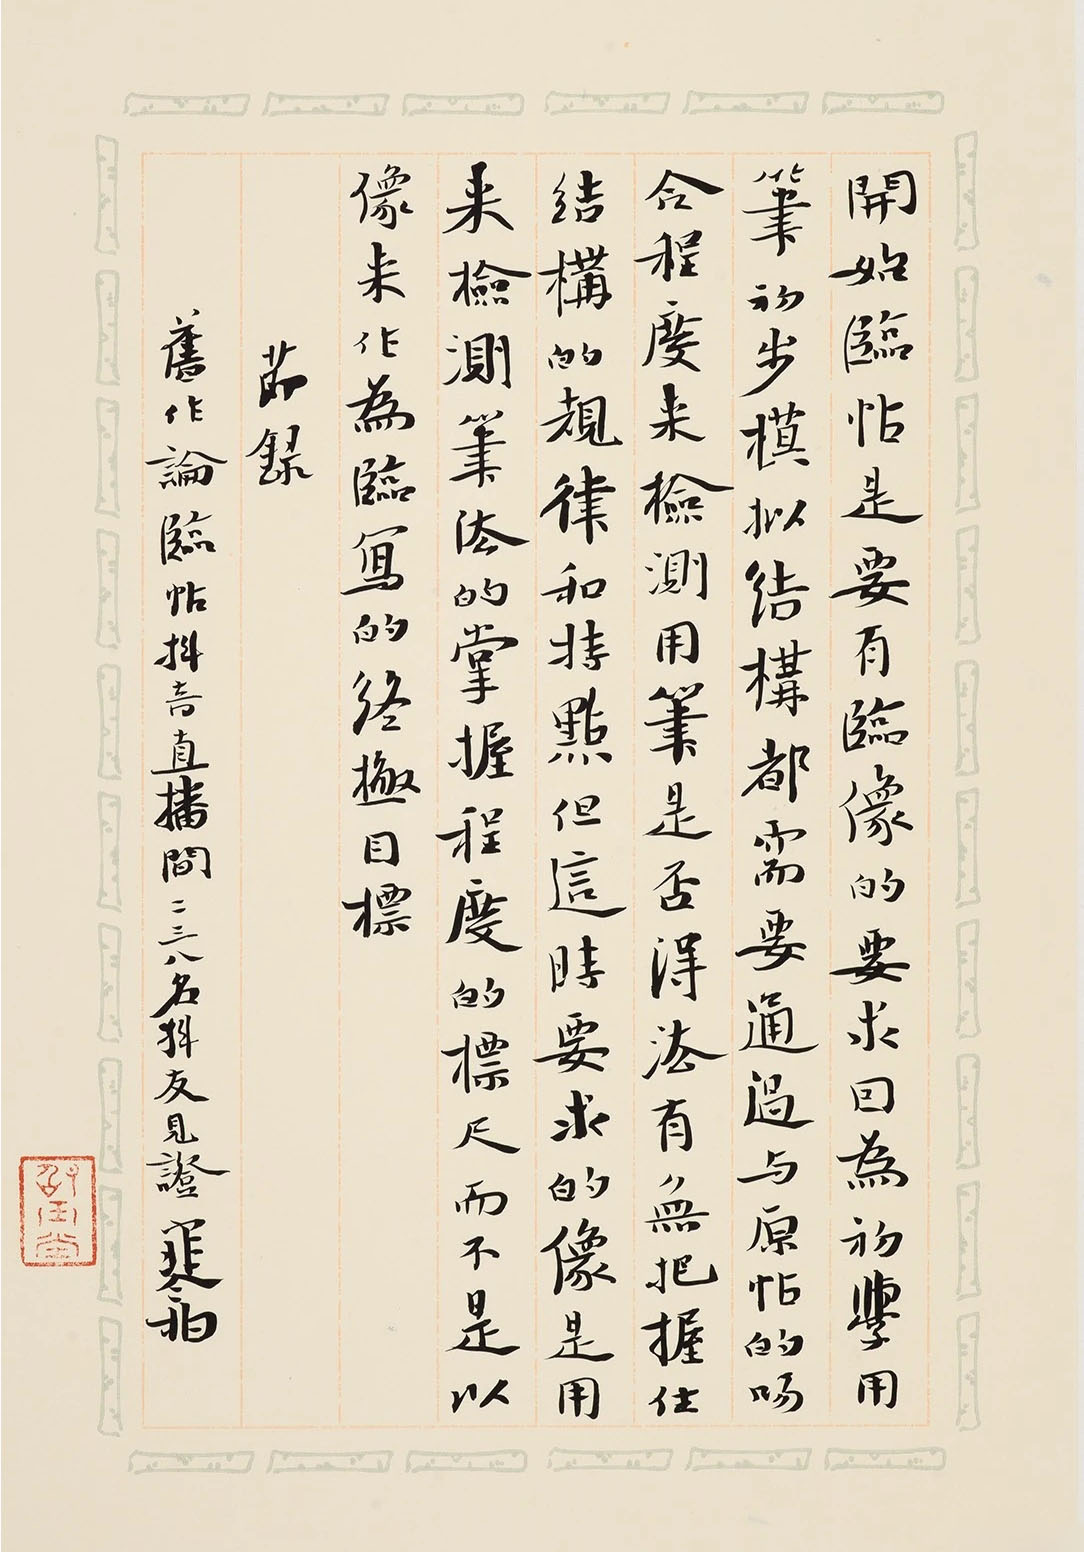 開始臨帖是要有臨像的要求因為初學用
筆初步模拟结構都需要通過与原帖的吻
合程度来檢測用筆是否得法有無把握住
结構的規律和特點但這時要求的像是用
来檢測筆法的掌握程度的標尺而不是以
像来作為臨寫的终極目標
節録
舊作論臨帖抖音直播間二三八名抖友見證